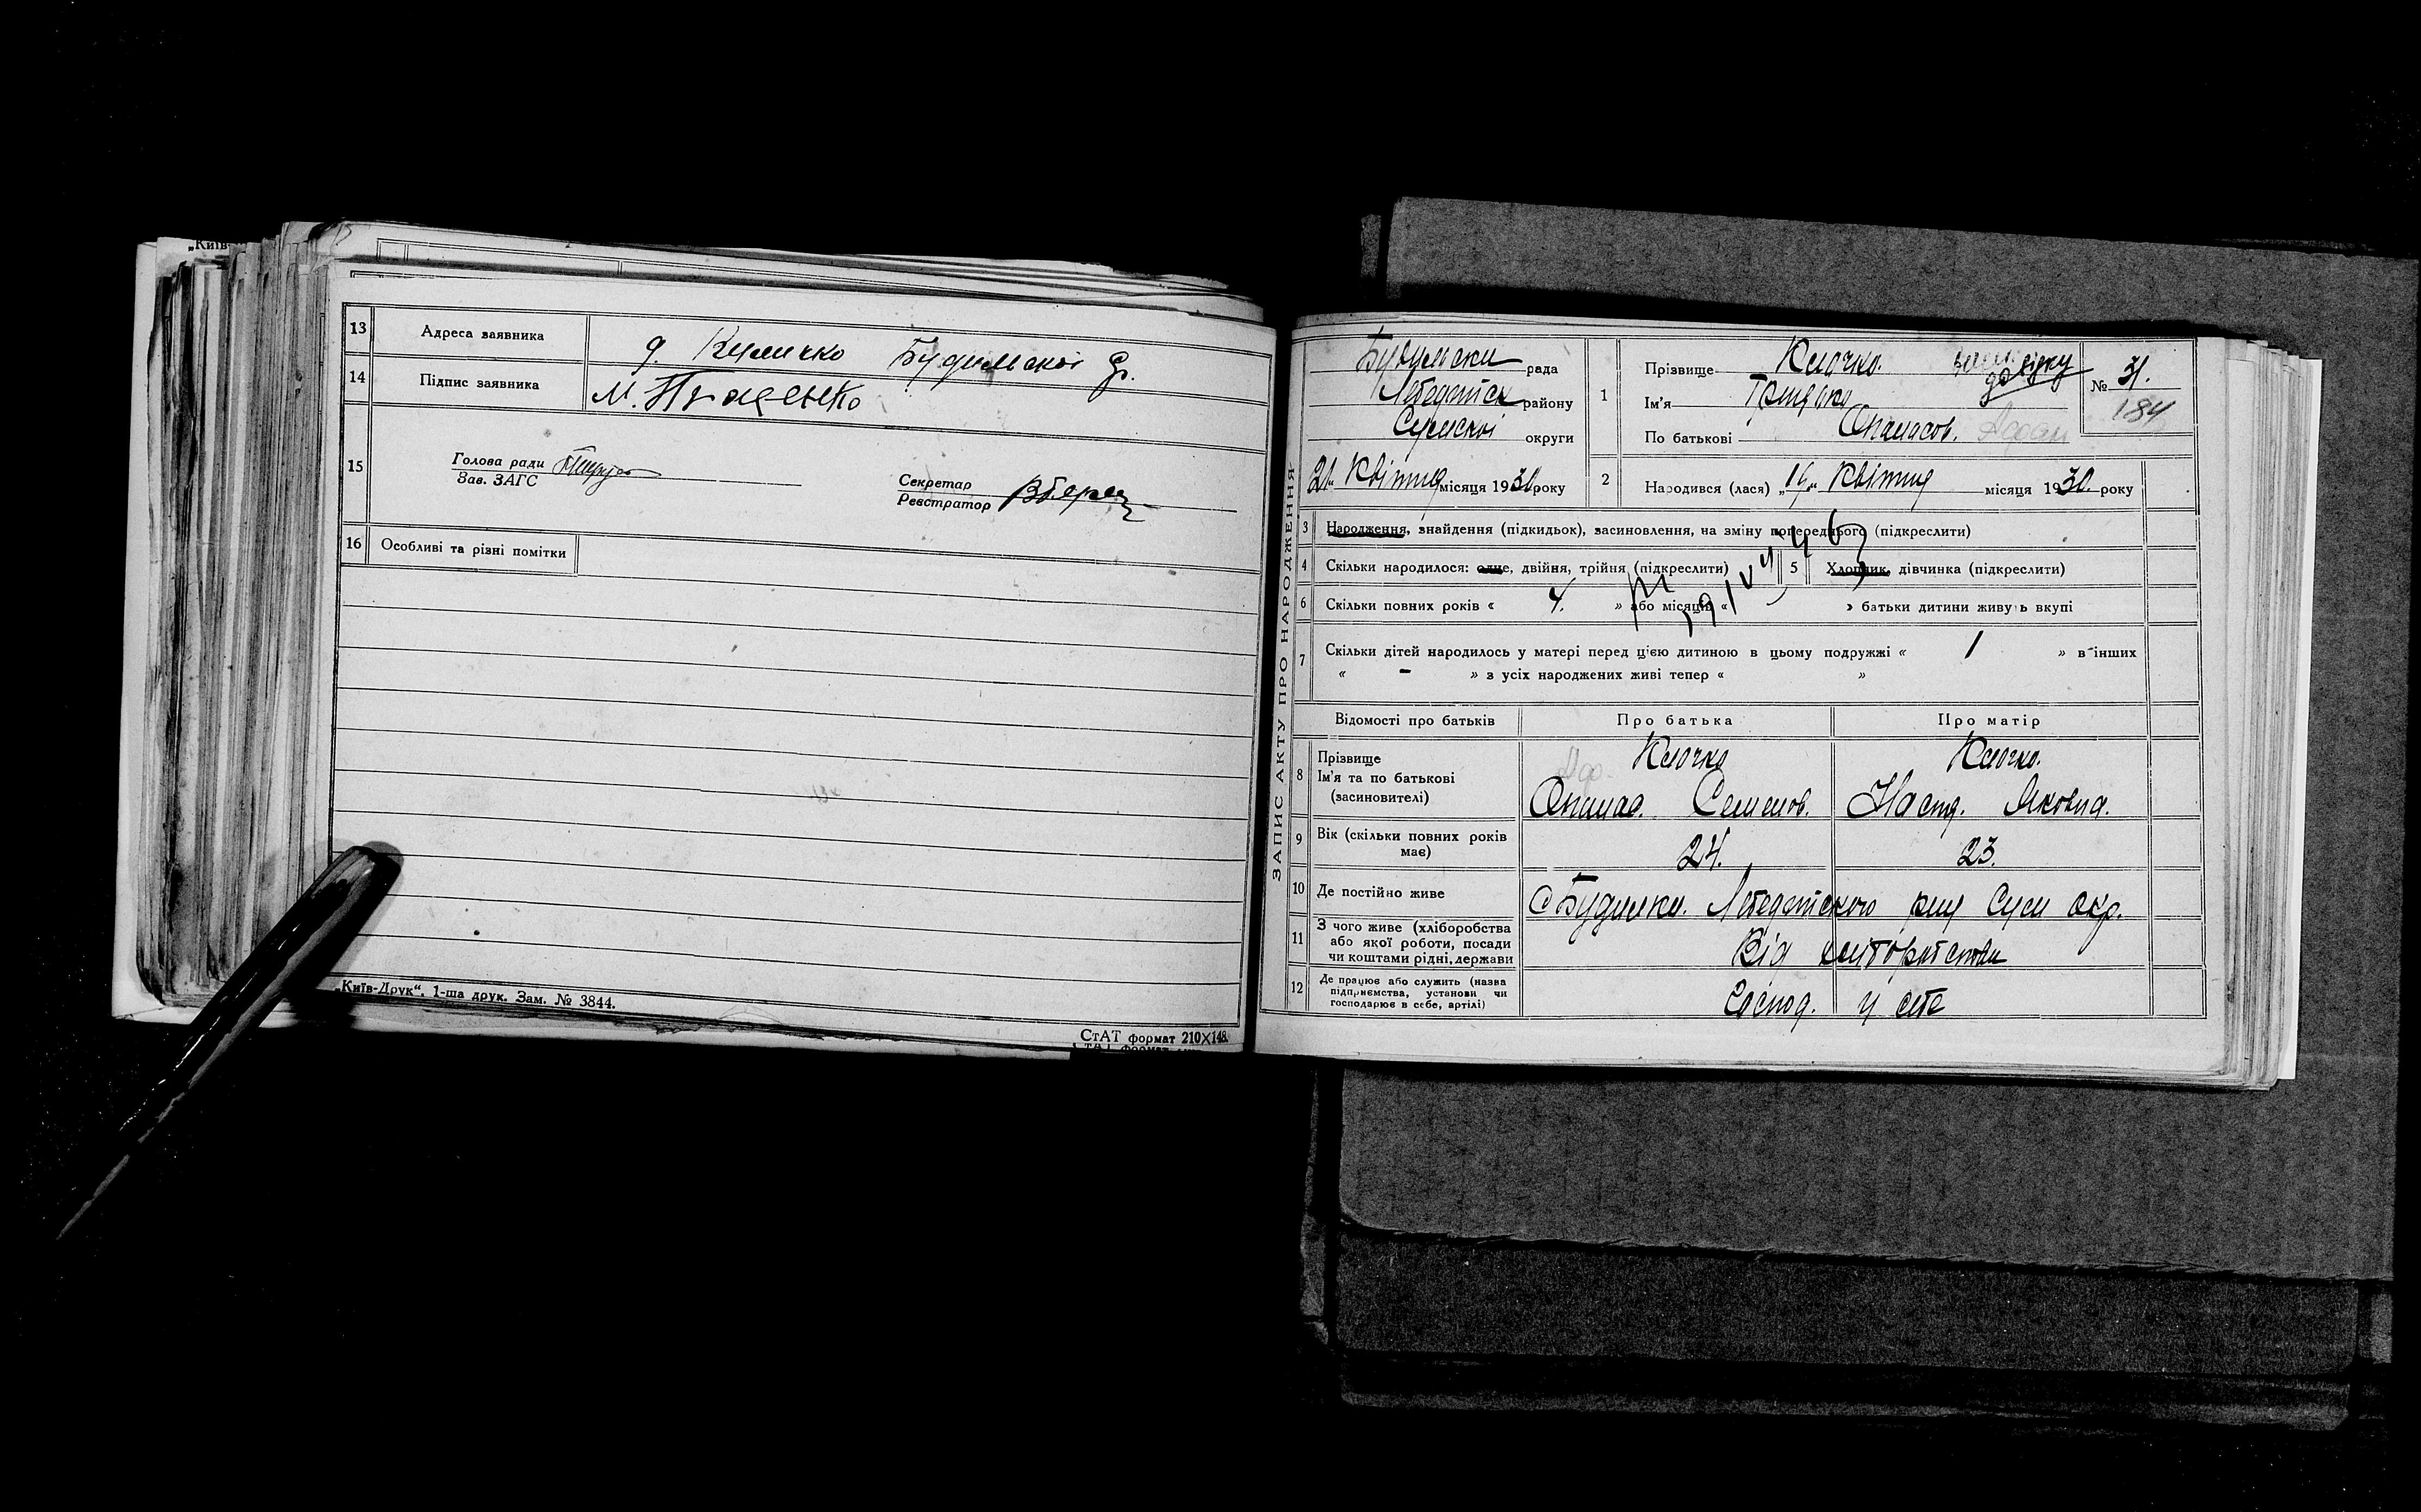 „Київ-
13 Адреса заявника
Будильскої
14 Підпис заявника
М.
15 Голова ради
Зав. ЗАГС
Секретар
Реєстратор
16 Особливі та різні помітки
„Київ-Друк“, 1-ша друк. Зам. № 3844.
СтАТ формат 210X148.
ЗАПИС АКТУ ПРО НАРОДЖЕННЯ
Будильска рада
Лебединск району
Сумскої округи
21 Квітня місяця 1930 року
1 Прізвище Клочко.
довідку
Ім'я Грицько
По батькові Опанасов.
№ 31.
184
2 Народився (лася) „14“ Квітня місяця 1930. року
3 Народження, знайдення (підкидьок), засиновлення, на зміну попереднього (підкреслити)
4 Скільки народилося: одне, двійня, трійня (підкреслити) 5 Хлопчик, дівчинка (підкреслити)
6 Скільки повних років « 4. » або місяців « » батьки дитини живуть вкупі
7 Скільки дітей народилось у матері перед цією дитиною в цьому подружжі « 1 » в інших
« - » з усіх народжених живі тепер « »
Відомості про батьків Про батька Про матір
8 Прізвище Клочко Клочко.
Ім'я та по батькові
(засиновителі) Опанас. Семенов. Настя. Яковна.
9 Вік (скільки повних років має) 24. 23.
10 Де постійно живе с Будилка. Лебединского рну Сум окр.
11 З чого живе (хліборобства або якої роботи, посади чи коштами рідні, держави Від хліборобства
12 Де працює або служить (назва підприємства, установи чи господарює в себе, артілі) Господ. у себе